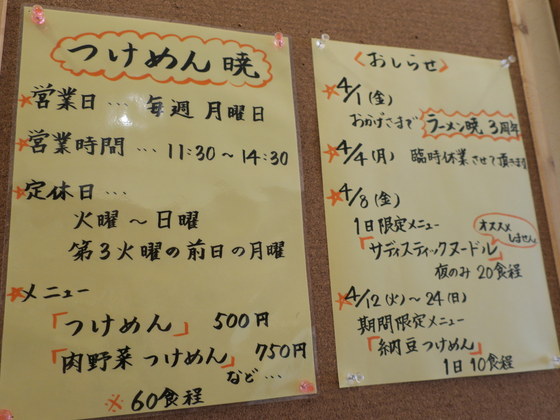 つけめん 暁
★営業日 … 毎週 月曜日
★営業時間 … 11:30～14:30
★定休日 …
火曜～日曜
第3火曜の前日の月曜
★メニュー
「つけめん」 500円
「肉野菜つけめん」 750円
など…
※ 60食程
〈おしらせ〉
★4/1(金)
おかげさまで ラーメン暁 3周年
★4/4(月) 臨時休業させて頂きます
★4/8(金)
1日限定メニュー
オススメしません
「サディスティックヌードル」
夜のみ 20食程
★4/12(火)～24(日)
期間限定メニュー
「納豆つけめん」
1日 10食程